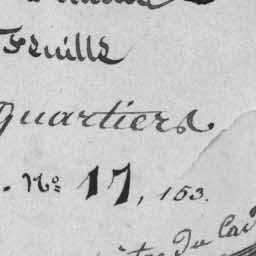 Feuille
Quartiers
. No: 17, 153.
du Cad